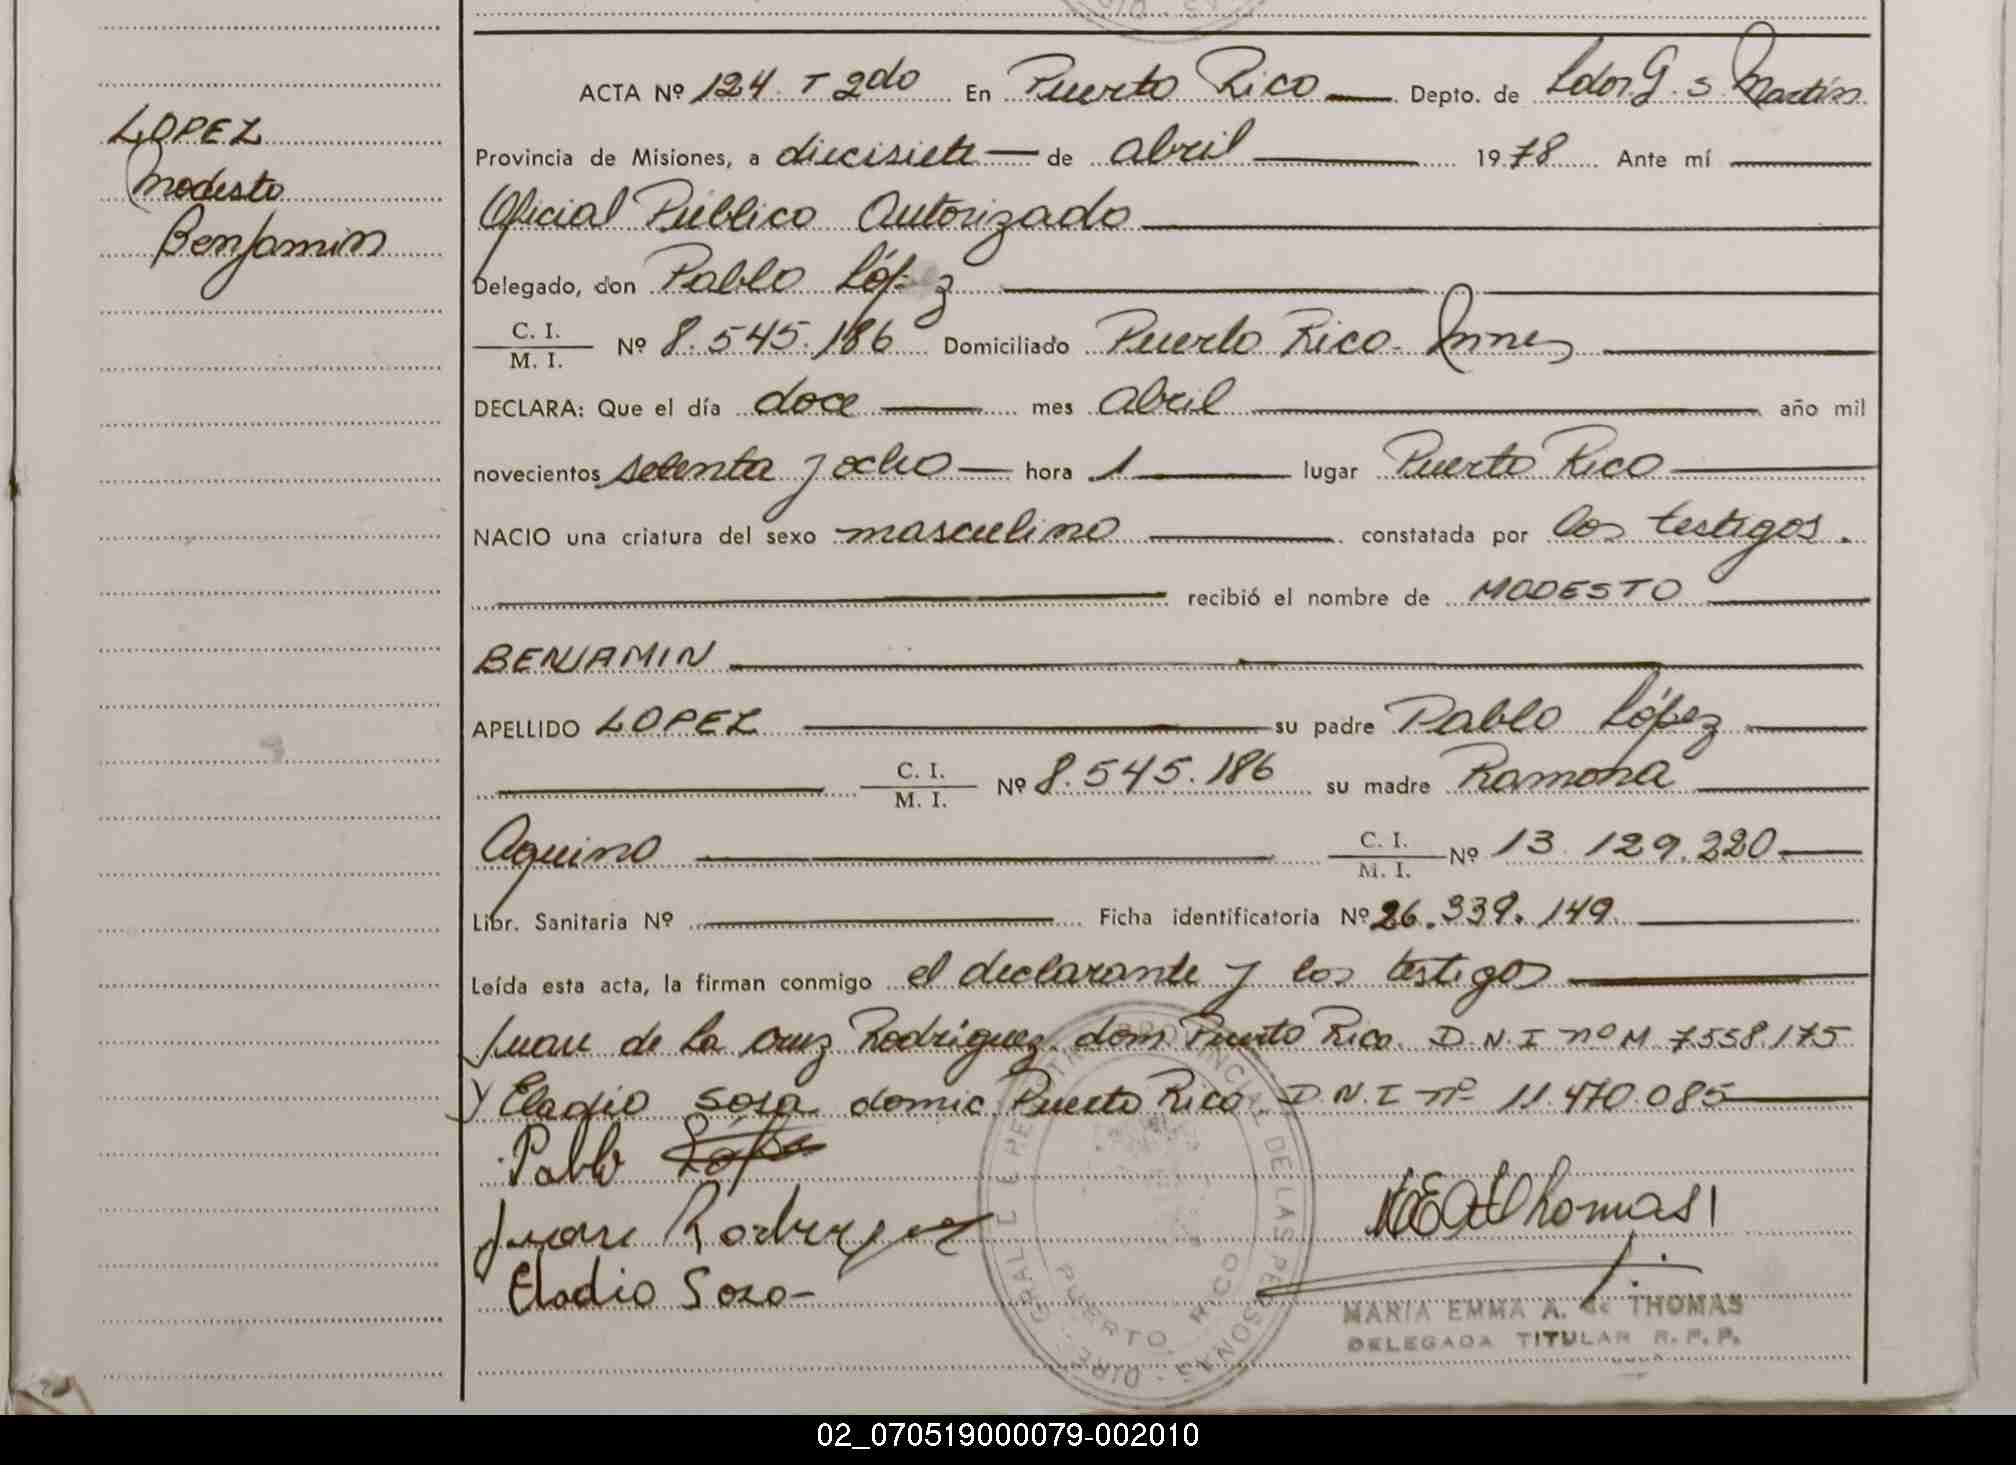 LOPEZ
Modesto
Benjamin
ACTA Nº 124 T 2do En Puerto Rico Depto. de Ldor. G. S Martín
Provincia de Misiones, a diecisiete de abril 1978 Ante mí
Oficial Público Autorizado
Delegado, don Pablo López
C. I.
M. I. Nº 8.545.186 Domiciliado Puerto Rico - Mnes
DECLARA: Que el día doce mes abril año mil
novecientos setenta y ocho hora 1 lugar Puerto Rico
NACIO una criatura del sexo masculino constatada por los testigos.
recibió el nombre de MODESTO
BENJAMIN
APELLIDO LOPEZ su padre Pablo López
C. I.
M. I. Nº 8.545.186 su madre Ramona
Aquino C. I.
M. I. Nº 13.129.220
Libr. Sanitaria Nº Ficha identificatoria Nº 26.339.149
Leída esta acta, la firman conmigo el declarante y los testigos
Juan de la Cruz Rodríguez dom Puerto Rico D.N.I nº M 7558.175
y Eladio Sosa domic. Puerto Rico D.N.I nº 11.470.085
Pablo López
Juan Rodriguez
Eladio Soza
MEAThomas
MARIA EMMA A. de THOMAS
DELEGADA TITULAR R. P. P.
PROVINCIAL DE LAS PERSONAS - DIREC. GRAL.
PUERTO RICO
02_070519000079-002010